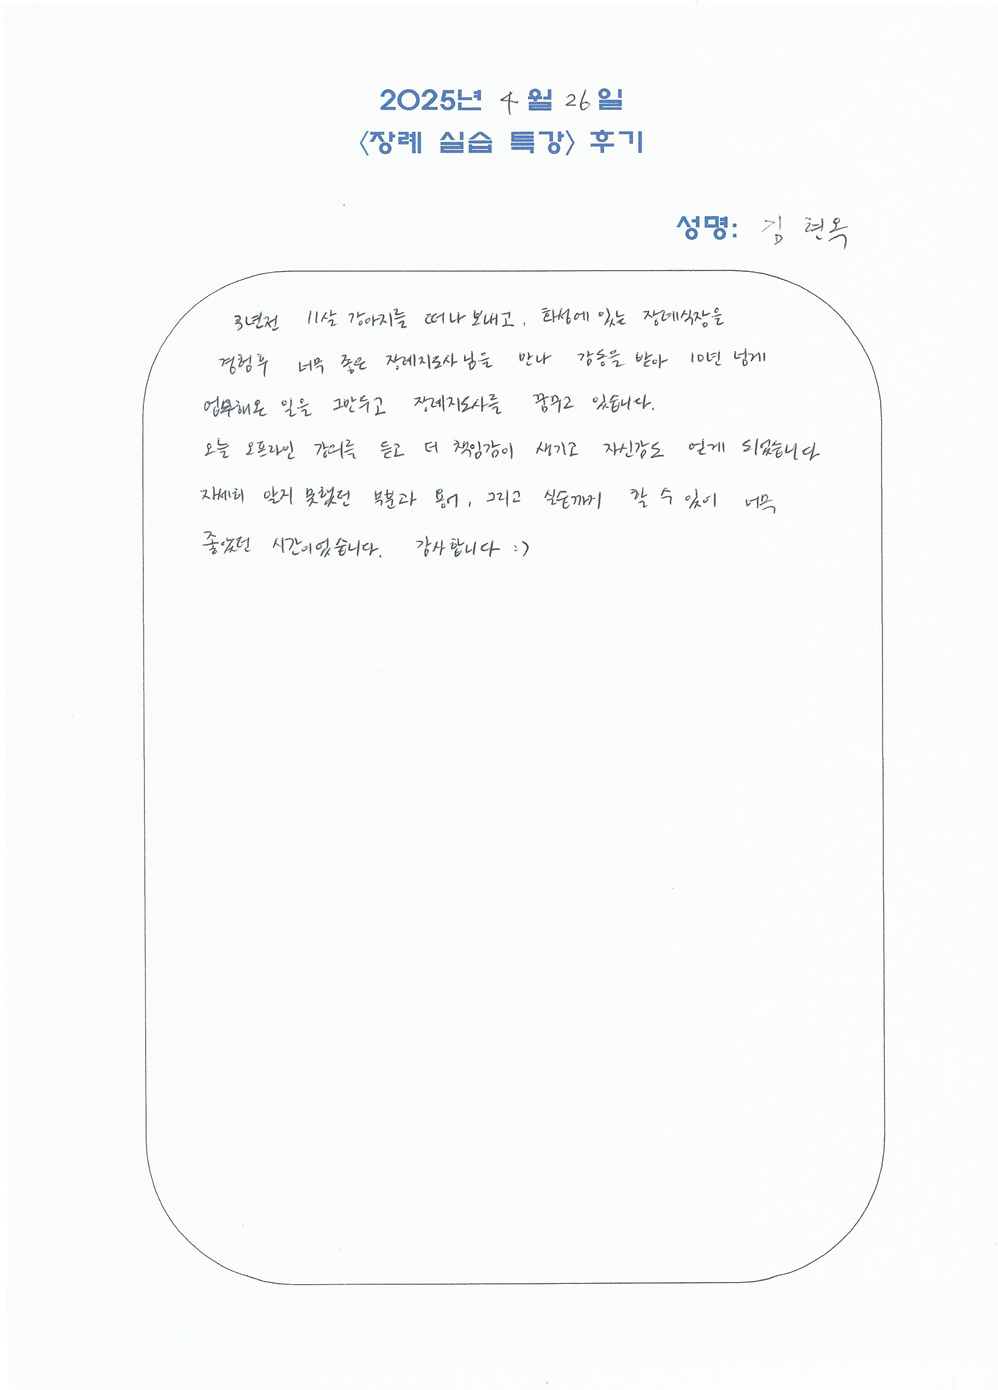 2025년 4월 26일
<장례 실습 특강> 후기
성명: 김현옥
3년전 11살 강아지를 떠나보내고, 화성에 있는 장례식장을
경험후 너무 좋은 장례지도사님을 만나 감동을 받아 10년 넘게
업무해온 일을 그만두고 장례지도사를 꿈꾸고 있습니다.
오늘 오프라인 강의를 듣고 더 책임감이 생기고 자신감도 얻게 되었습니다
자세히 알지 못했던 부분과 용어, 그리고 실습까지 할 수 있어 너무
좋았던 시간이었습니다. 감사합니다 :)